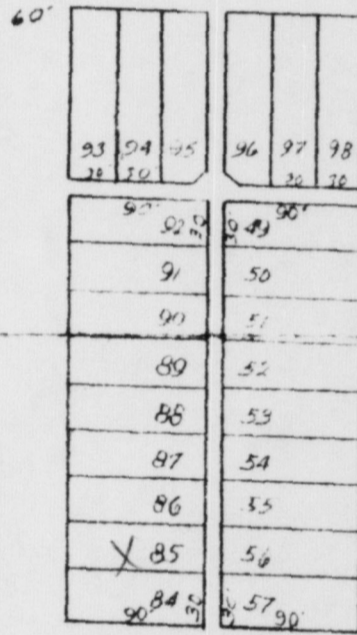 60'
93 94 95 96 97 98
30 30 30 30
90' 90'
92 30 30 49
91 50
90 51
89 52
88 53
87 54
86 55
X 85 56
84 30 30 57
90' 90'